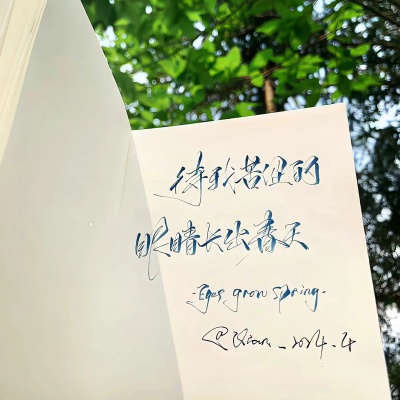 待
眼睛长出春天
-Eyes grow spring-
@Qian_2024.4